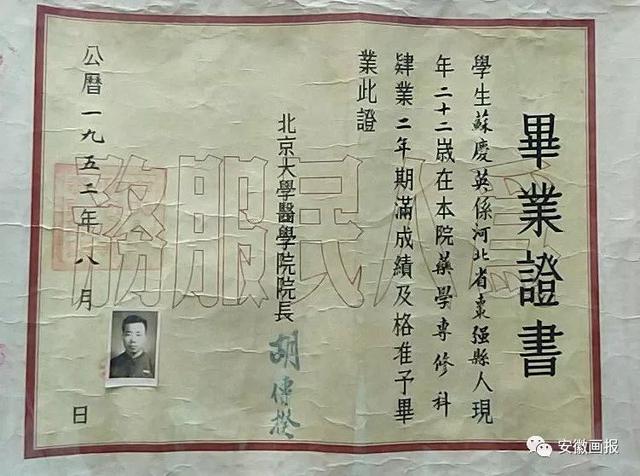 畢業證書
學生蘇慶英係河北省棗强縣人現
年二十二歲在本院藥學專修科
肄業二年期滿成績及格准予畢
業此證
為人民服務
北京大學醫學院院長
胡傳揆
公曆一九五二年八月 日
安徽画报